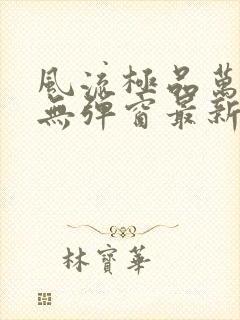 風流極品萬
無彈窗最新
林寶華